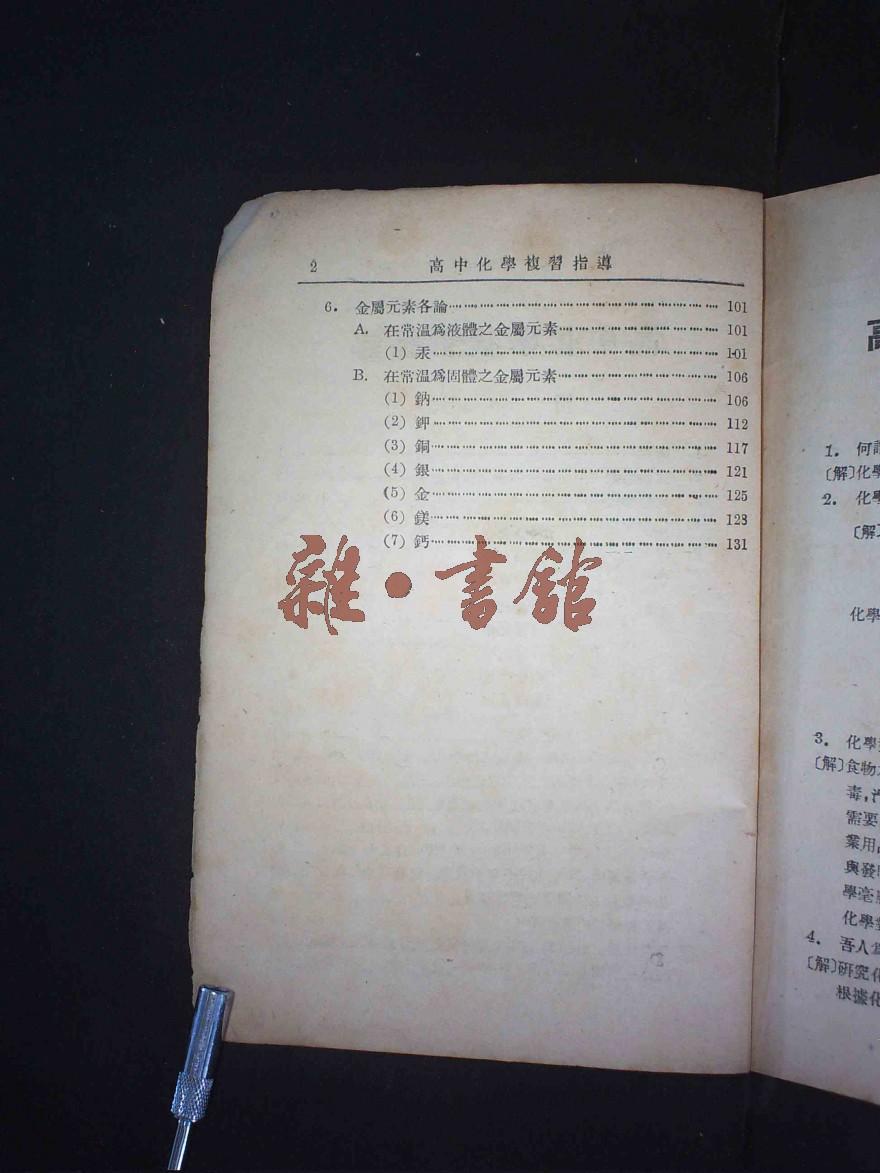 2 高中化學複習指導
6. 金屬元素各論 101
A. 在常温爲液體之金屬元素 101
(1) 汞 101
B. 在常温爲固體之金屬元素 106
(1) 鈉 106
(2) 鉀 112
(3) 銅 117
(4) 銀 121
(5) 金 125
(6) 鎂 128
(7) 鈣 131
雜·書館
1. 何
〔解〕化學
2. 化學
〔解〕
化學
3. 化學
〔解〕食物
毒,
需要
業用
與發
學毫
化學
4. 吾人
〔解〕研究化
根據化